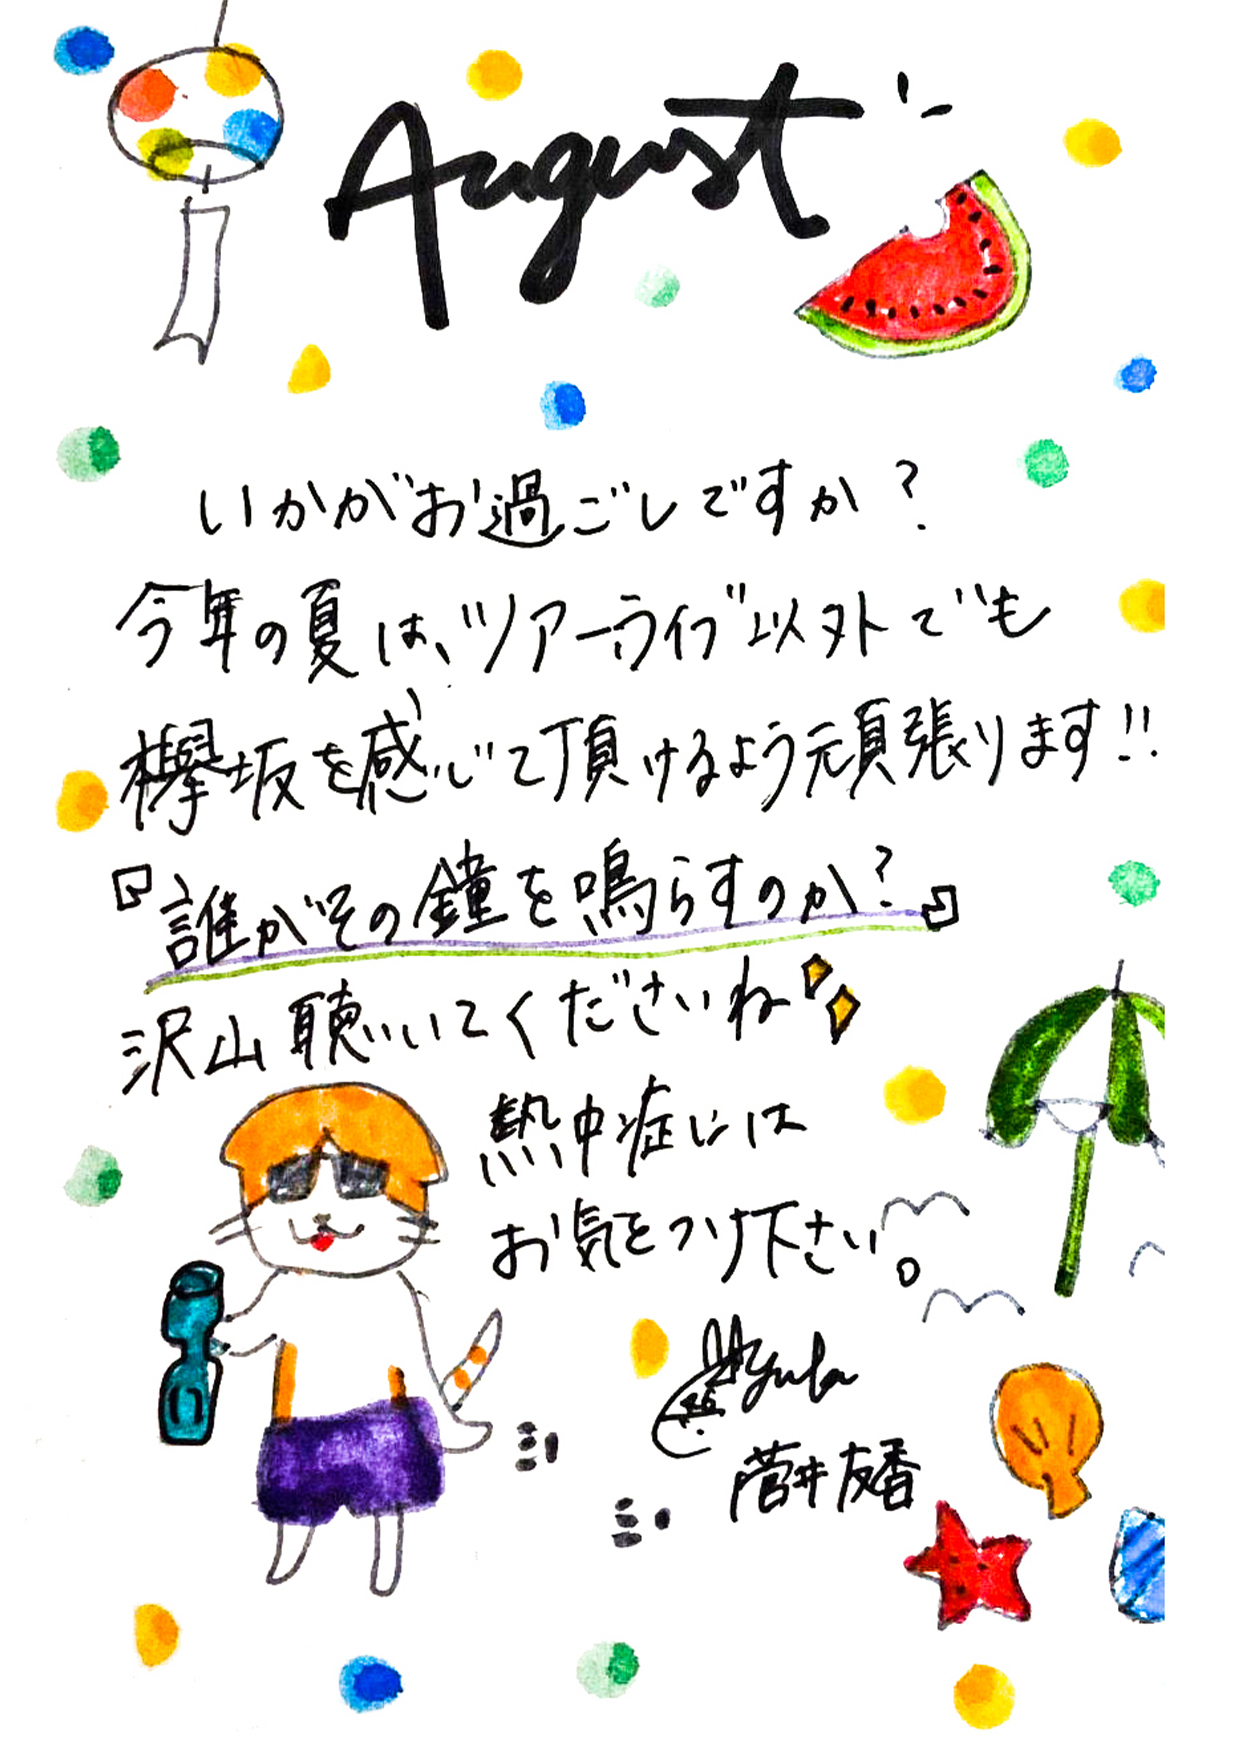 August
いかがお過ごしですか？
今年の夏は、ツアーライブ以外でも
欅坂を感じて頂けるよう頑張ります!!
『誰がその鐘を鳴らすのか？』
沢山聴いてくださいね
熱中症には
お気をつけ下さい。
Yuuka
菅井友香